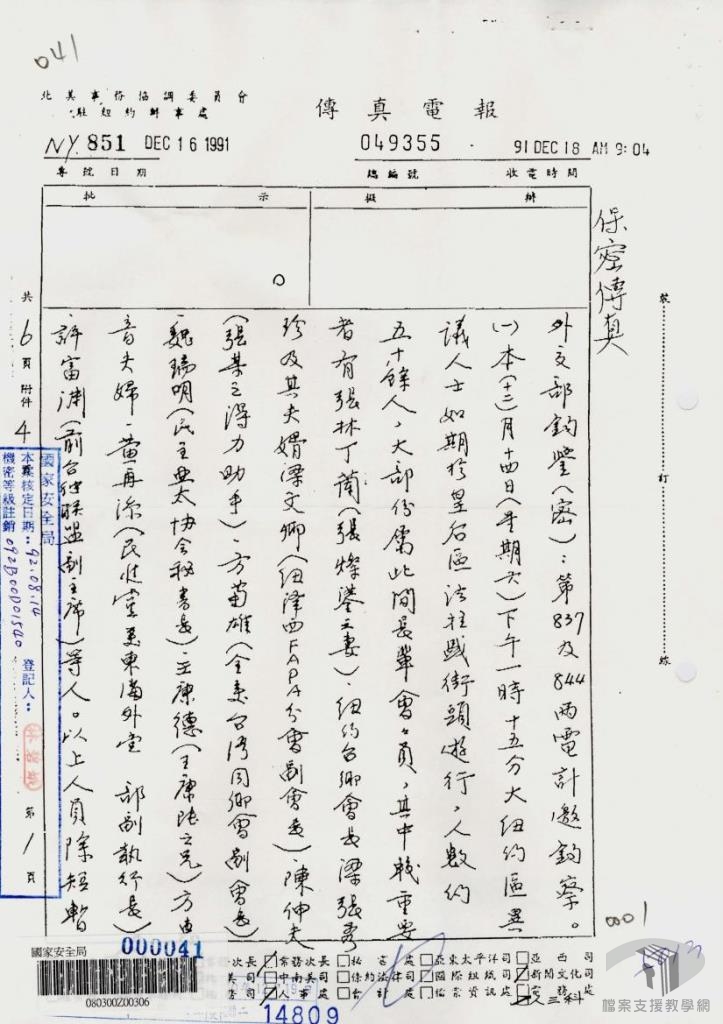 041
北美事務協調委員會
駐紐約辦事處
傳真電報
NY. 851 DEC 16 1991
049355
91 DEC 18 AM 9:04
專號日期
總編號
收電時間
批示
擬辦
保密傳真
裝訂線
外交部鈞鑒(密):第837及844兩電計邀鈞察。
(一)本(十二)月十四日(星期六)下午一時十五分大紐約區異
議人士如期於皇后區法拉盛街頭遊行,人數約
五十餘人,大部份屬此間長輩會會員,其中較重要
者有張林丁蘭(張燦鍙之妻)、紐約台鄉會長梁張秀
珍及其夫婿梁文卿(紐澤西FAPA分會副會長)陳仲夫
(張某之得力助手)、方菊雄(全美台灣同鄉會副會長)
魏瑞明(民主亞太協會秘書長)、王康德(王康陸之兄)方
音夫婦、黃再添(民進黨美東海外黨部副執行長)
許富淵(前台 聯盟副主席)等人。以上人員除短暫
共6頁附件4
第1頁
國家安全局
本案核定日期:92.08.14
機密等級註銷
092B00001540
登記人:
001
國家安全局
000041
080300Z00306
14809
次長
常務次長
司
亞東太平洋司
亞西司
新聞文化司
人三科
檔案支援教學網